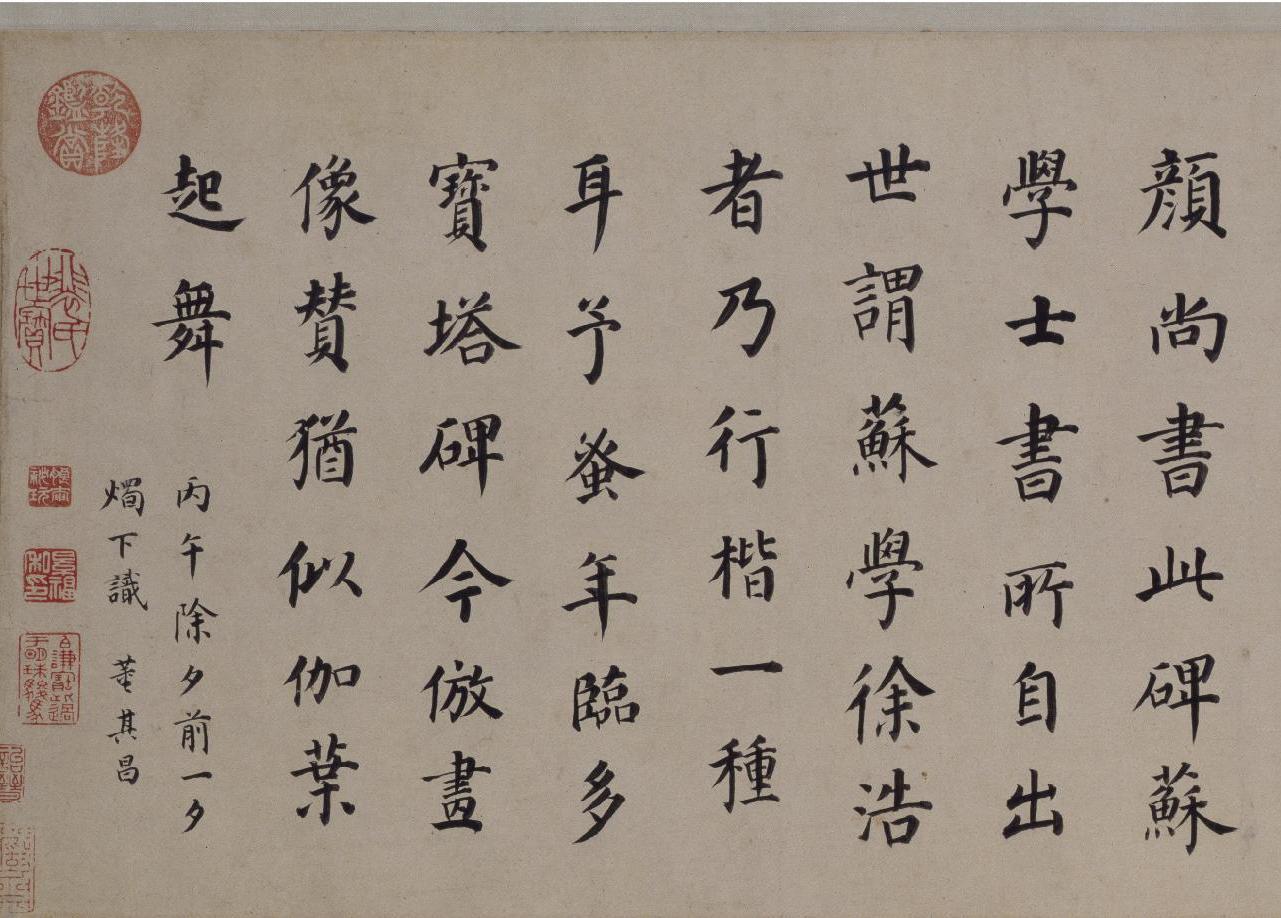 顏尚書此碑蘇
學士書所自出
世謂蘇學徐浩
者乃行楷一種
耳予蚤年臨多
寶塔碑今倣畫
像贊猶似伽葉
起舞
丙午除夕前一夕
燭下識 董其昌
乾隆鑑賞
張氏世寶
景福私印